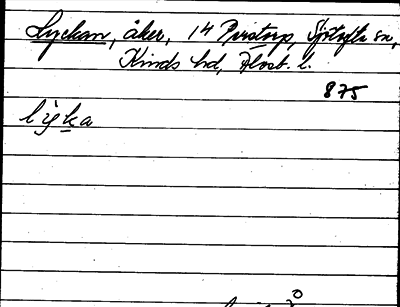 Lyckan, åker, 14 Perstorp, Sjötofta sn,
Kinds hd, Älvsb. l.
875
lyka